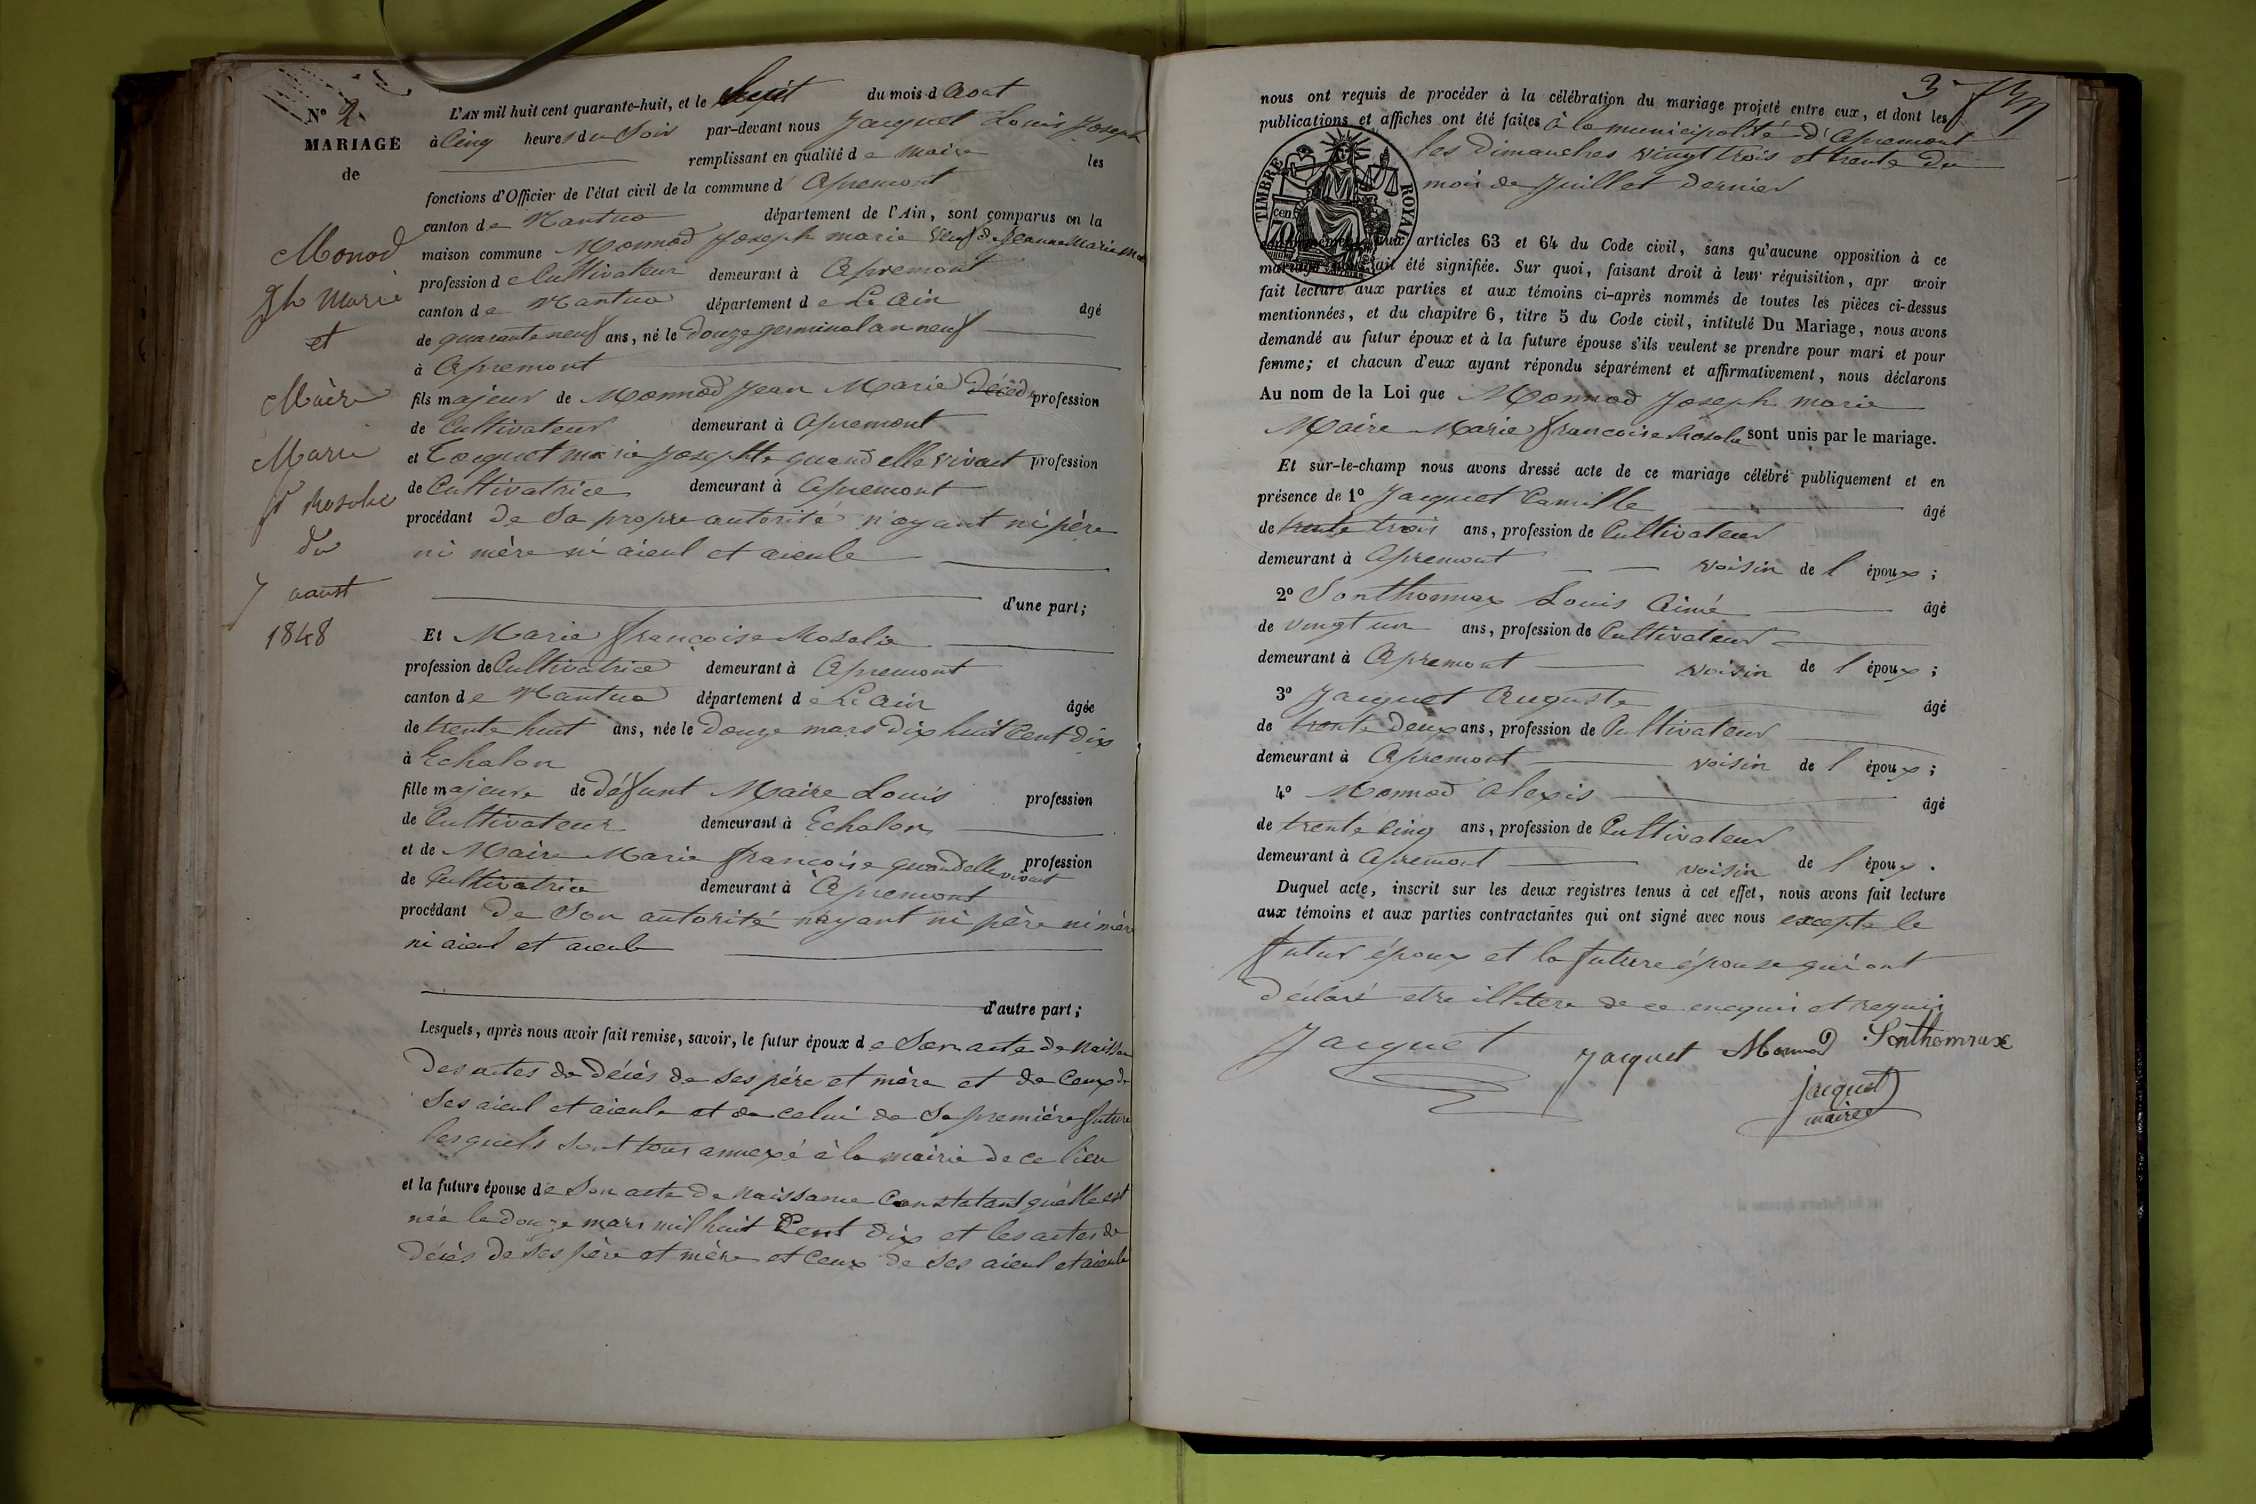 N° 2.
MARIAGE
de
Monod
Jh Marie
et
Maire
Marie
fs Rosolie
du
7 aoust
1848
L'AN mil huit cent quarante-huit, et le huit du mois d Aout
à Cinq heures du Soir par-devant nous Jacquet Louis Joseph
remplissant en qualité de maire les
fonctions d'Officier de l'état civil de la commune d' Apremont
canton de Nantua département de l'Ain, sont comparus en la
maison commune Monnod Joseph marie Veuf de Jeanne Marie
profession de Cultivateur demeurant à Apremont
canton de Nantua département de L'Ain âgé
de quarante neuf ans, né le Douze germinal an neuf
à Apremont
fils majeur de Monnod Jean Marie profession
de Cultivateur demeurant à Apremont
et Tocquet marie Josephte quand elle vivait profession
de Cultivatrice demeurant à Apremont
procédant de Sa propre autorité n'ayant ni père
ni mère ni aieul et aieule
d'une part;
Et Marie françoise Rosalie
profession de Cultivatrice demeurant à Apremont
canton de Nantua département de L'Ain âgée
de trente huit ans, née le Douze mars Dix huit Cent Dix
à Echalon
fille majeure de défunt Maire Louis profession
de Cultivateur demeurant à Echalon
et de Maire Marie françoise quand elle vivait profession
de Cultivatrice demeurant à Apremont
procédant de Son autorité nayant ni père ni mère
ni aieul et aieule
d'autre part;
Lesquels, après nous avoir fait remise, savoir, le futur époux de Son acte de Naissan
Des actes de Décès de ses père et mère et de Ceux de
Ses aieul et aieule et de celui de Sa première future
lesquels Sont tous annexé à la mairie de ce lieu
et la future épouse de Son acte de Naissance Constatant quelle est
née le douze mars mil huit Cent Dix et les actes de
Décès de Ses père et mère et Ceux de Ses aieul et aieule
3
nous ont requis de procéder à la célébration du mariage projeté entre eux, et dont les
publications et affiches ont été faites à la municipalité d'Apremont
les Dimanches vingt trois et trente Du
mois de Juillet Dernier
TIMBRE ROYAL
aux articles 63 et 64 du Code civil, sans qu'aucune opposition à ce
mariage nous ait été signifiée. Sur quoi, faisant droit à leur réquisition, apr avoir
fait lecture aux parties et aux témoins ci-après nommés de toutes les pièces ci-dessus
mentionnées, et du chapitre 6, titre 5 du Code civil, intitulé Du Mariage, nous avons
demandé au futur époux et à la future épouse s'ils veulent se prendre pour mari et pour
femme; et chacun d'eux ayant répondu séparément et affirmativement, nous déclarons
Au nom de la Loi que Monnod Joseph marie
Maire Marie françoise Rosalie sont unis par le mariage.
Et sur-le-champ nous avons dressé acte de ce mariage célébré publiquement et en
présence de 1° Jacquet Camille âgé
de trente trois ans, profession de Cultivateur
demeurant à Apremont voisin de l'époux;
2° Sonthonnax Louis Aimé âgé
de vingt un ans, profession de Cultivateur
demeurant à Apremont voisin de l'époux;
3° Jacquet Auguste âgé
de trente deux ans, profession de Cultivateur
demeurant à Apremont voisin de l'époux;
4° Monnod Alexis âgé
de trente Cinq ans, profession de Cultivateur
demeurant à Apremont voisin de l'époux.
Duquel acte, inscrit sur les deux registres tenus à cet effet, nous avons fait lecture
aux témoins et aux parties contractantes qui ont signé avec nous excepté le
futur époux et la future épouse qui ont
Déclaré etre illitere de ce enequis et requis
Jacquet Jacquet Monnod Sonthonnax
jacquet
maire